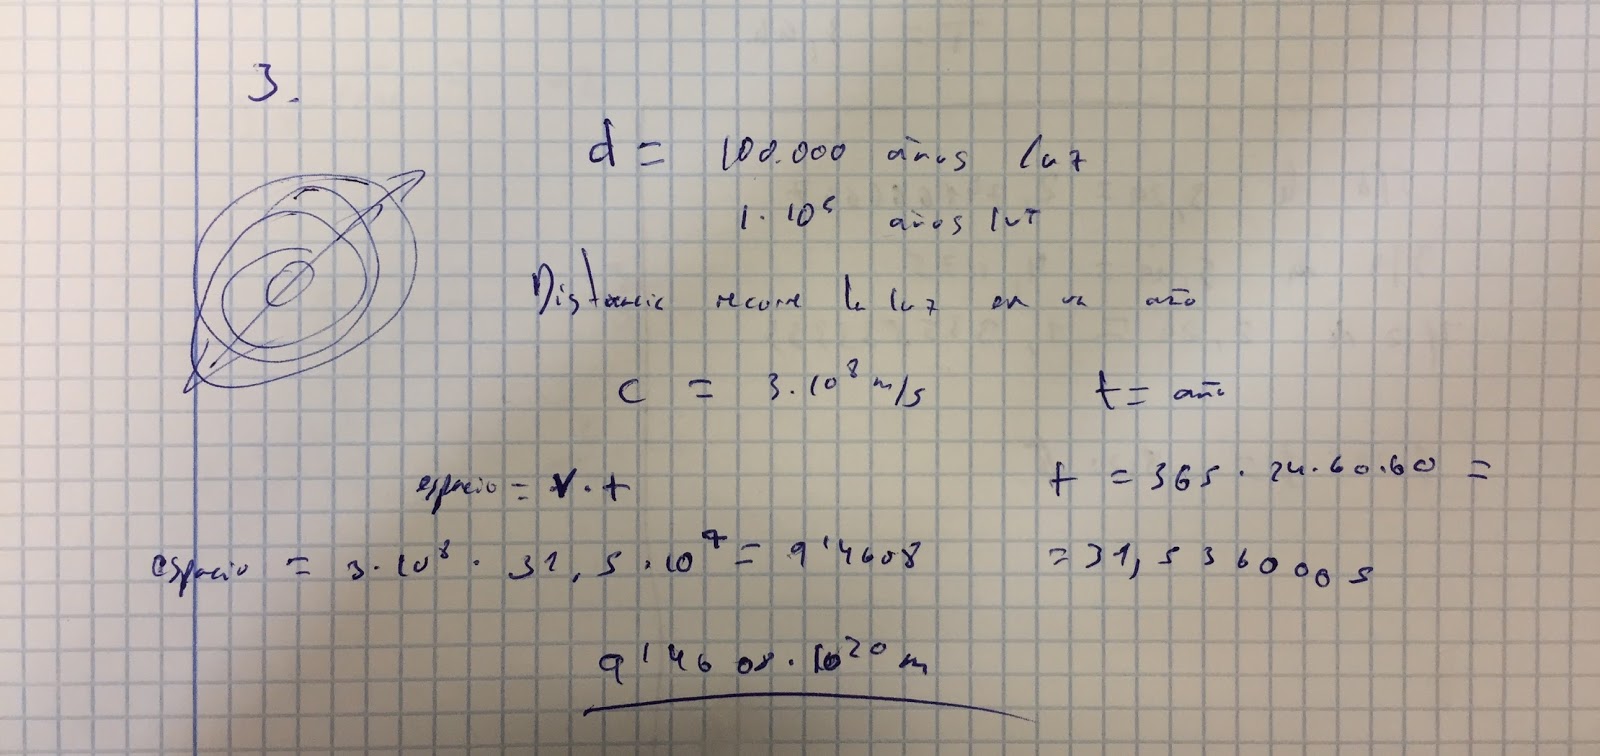 3.
d = 100.000 años luz
1 · 10⁵ años luz
Distancia recorre la luz en un año
c = 3 · 10⁸ m/s t = año
espacio = v · t t = 365 · 24 · 60 · 60 =
espacio = 3 · 10⁸ · 31,5 · 10⁷ = 9'4608 = 31,536000 s
9'4608 · 10²⁰ m